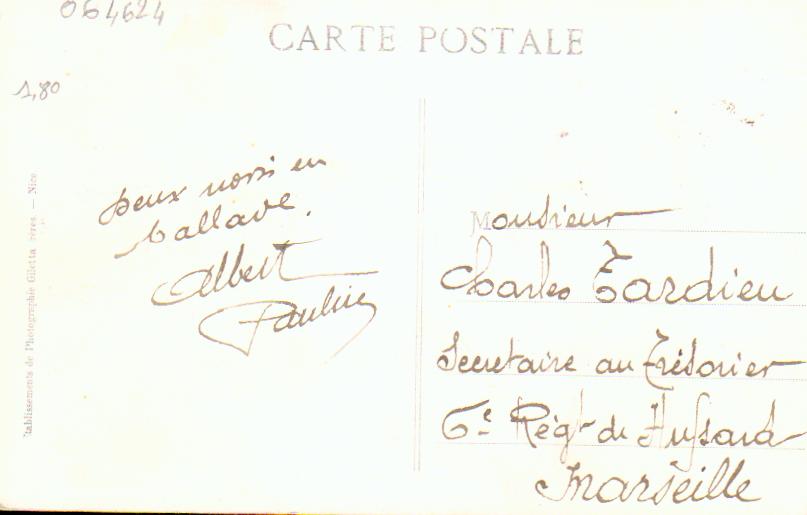 064624
CARTE POSTALE
1,80
Etablissements de Photographie Giletta frères. — Nice
Deux novi en
ballade.
Albert
Pauline
Monsieur
Charles Tardieu
Secretaire au Trésorier
6e Régt de Hussard
Marseille